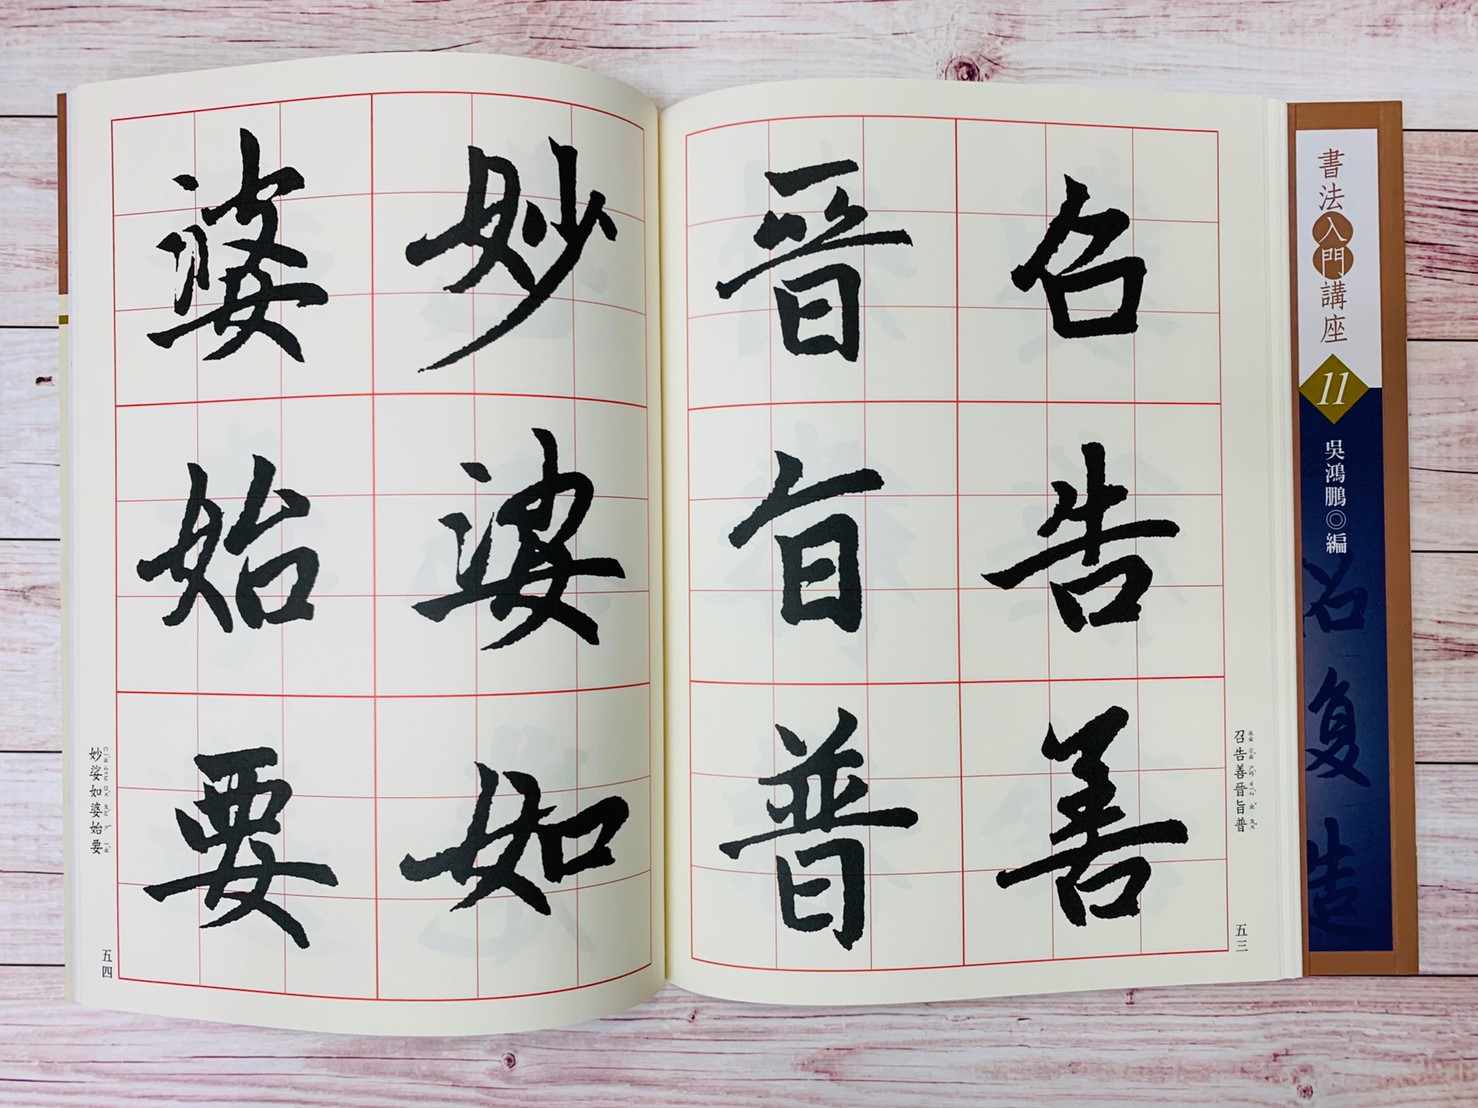 書法入門講座
11
吳鴻鵬◎編
召告善
晉旨普
召告善晉旨普
五三
妙娑如
婆始要
妙娑如婆始要
五四